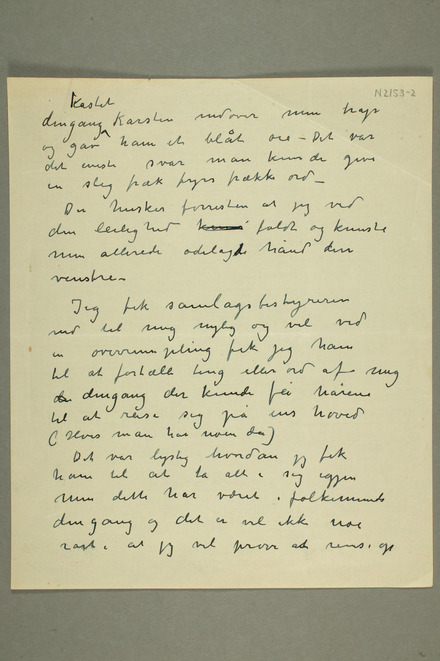 N2153-2
kastet
dengang Karsten nedover min trap
og gav ham et blåt øie – Det var
det eneste svar man kunde give
en slig fræk fyrs frække ord –
Du husker forresten at jeg ved
den leilighed faldt og knuste
min allerede ødelagte hånd den
venstre –
Jeg fik samlagsbestyreren
ned til mig nylig og vel ved
en overrumpling fik jeg ham
til at fortælle ting eller ord af mig
dengang der kunde få hårene
til at reise sig på ens hoved
(Hvis man har noen da)
Det var lystig hvordan jeg fik
ham til at ta alt i sig igjen
men dette har været i folkemunde
dengang og det er vel ikke noe
rart i at jeg vil prøve at rense op